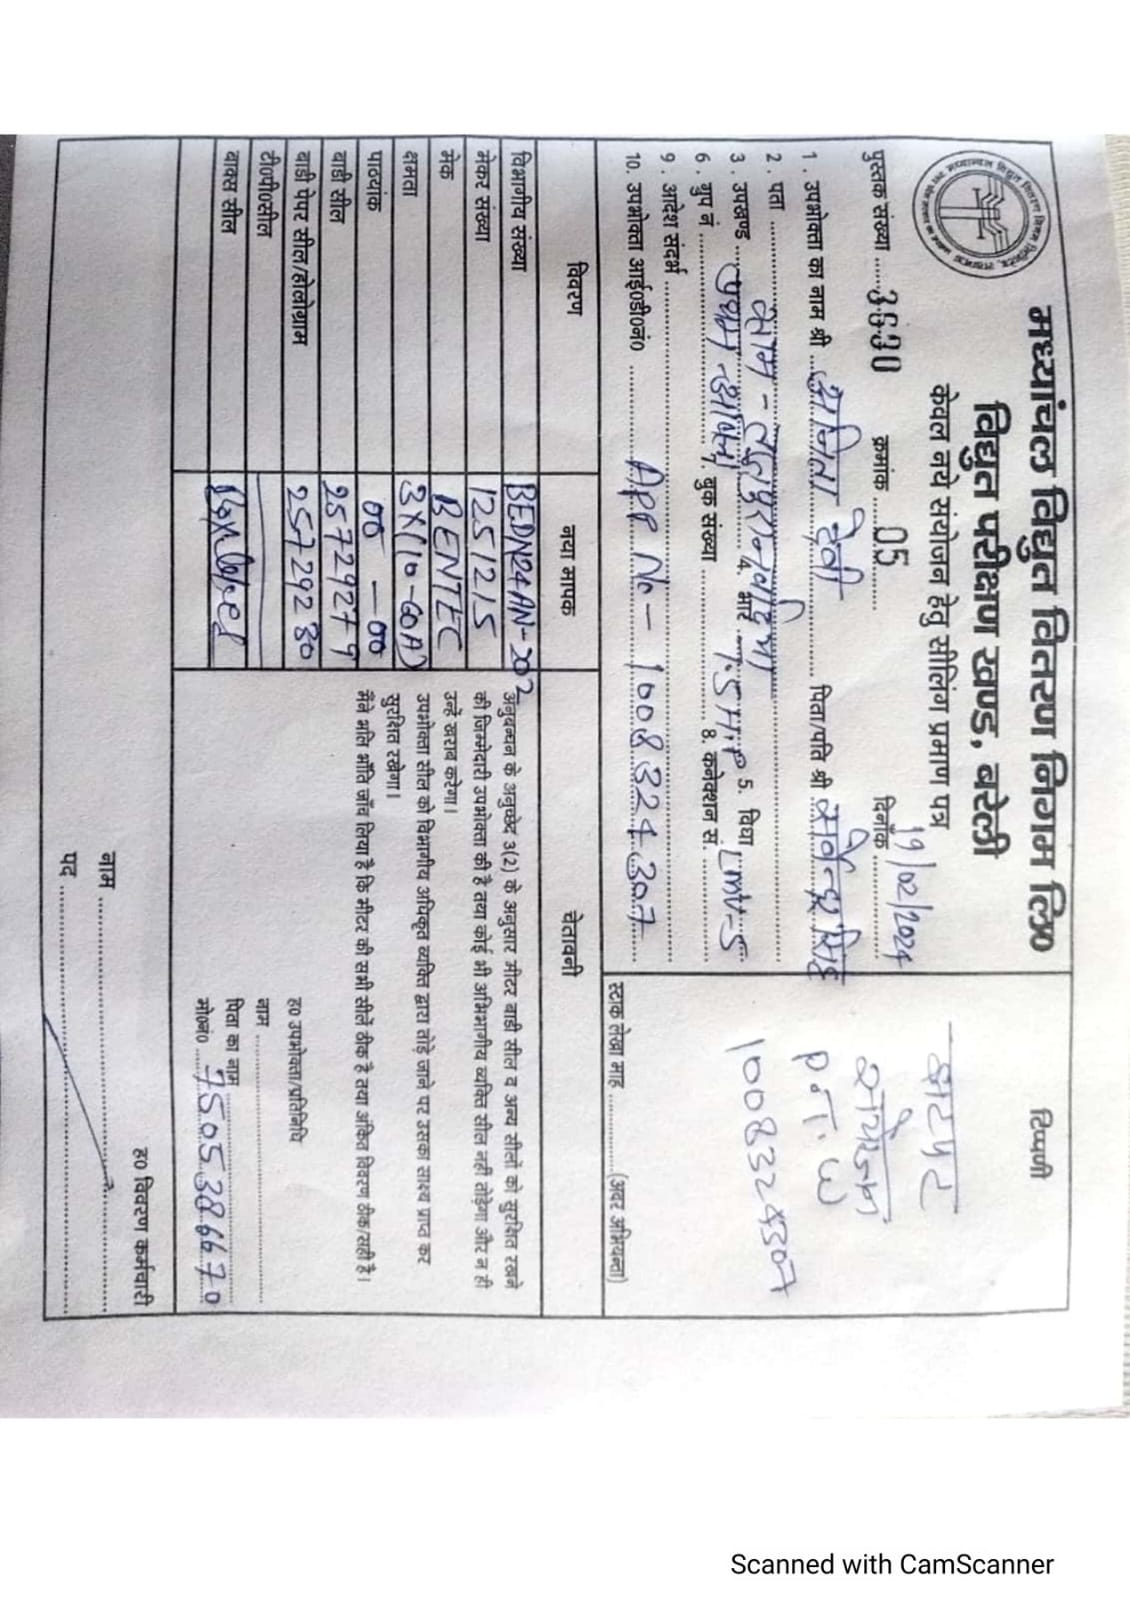 मध्यांचल विद्युत वितरण निगम लि०
विद्युत परीक्षण खण्ड, बरेली
केवल नये संयोजन हेतु सीलिंग प्रमाण पत्र
पुस्तक संख्या ..... 3630 क्रमांक ..... 05 ..... दिनाँक ..... 19/02/2024
1. उपभोक्ता का नाम श्री ... अनिता देवी ..... पिता/पति श्री ... सर्वेन्द्र सिंह
2. पता .....
3. उपखण्ड ... 4. भार ... 7.5 H.P 5. विधा LMV-5
6. ग्रुप नं ..... 7. बुक संख्या ..... 8. कनेक्शन सं. .....
9. आदेश संदर्भ .....
10. उपभोक्ता आई०डी०नं० ..... APP No - 1008324307
टिप्पणी
P.T.W
1008324307
स्टाक लेखा माह ............ (अवर अभियन्ता)
विवरण नया मापक चेतावनी
विभागीय संख्या BEDN24AN-202
मेकर संख्या 1251215
मेक BENTEC
क्षमता 3X(10-60A)
पाठ्यांक 00 - 00
बाडी सील 25729279
बाडी पेपर सील/होलोग्राम 25729280
टी०पी०सील
बाक्स सील
अनुबन्धन के अनुच्छेद 3(2) के अनुसार मीटर बाडी सील व अन्य सीलों को सुरक्षित रखने
की जिम्मेदारी उपभोक्ता की है तथा कोई भी अभिभागीय व्यक्ति सील नही तोड़ेगा और न ही
उन्हें खराब करेगा।
उपभोक्ता सील को विभागीय अधिकृत व्यक्ति द्वारा तोड़े जाने पर उसका साक्ष्य प्राप्त कर
सुरक्षित रखेगा।
मैंने भलि भाँति जाँच लिया है कि मीटर की सभी सीलें ठीक है तथा अंकित विवरण ठीक/सही है।
ह० उपभोक्ता/प्रतिनिधि
नाम ............
पिता का नाम ............
मो०नं० ... 7505386670
ह० विवरण कर्मचारी
नाम ............
पद ............
Scanned with CamScanner